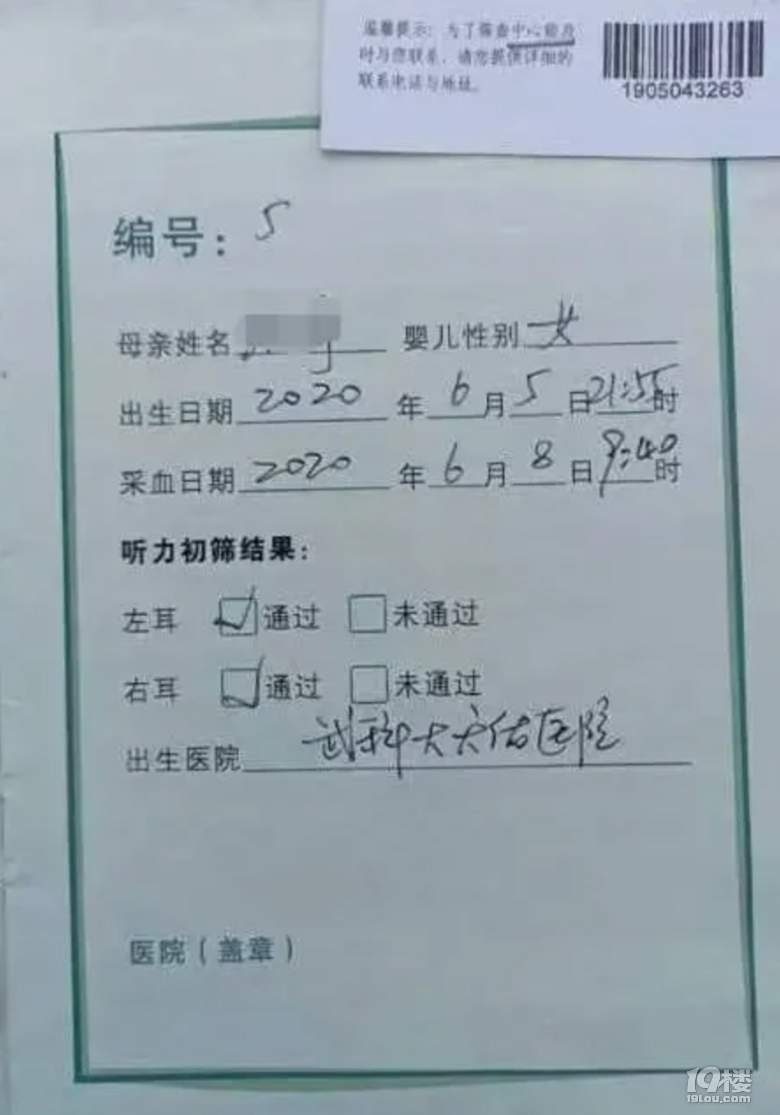 温馨提示：为了筛查中心能及
时与您联系，请您提供详细的
联系电话与地址。
1905043263
编号：5
母亲姓名 婴儿性别 女
出生日期 2020 年 6 月 5 日 21:55 时
采血日期 2020 年 6 月 8 日 9:40 时
听力初筛结果：
左耳 ☑通过 □未通过
右耳 ☑通过 □未通过
出生医院 武科大天佑医院
医院（盖章）
19楼
19lou.com